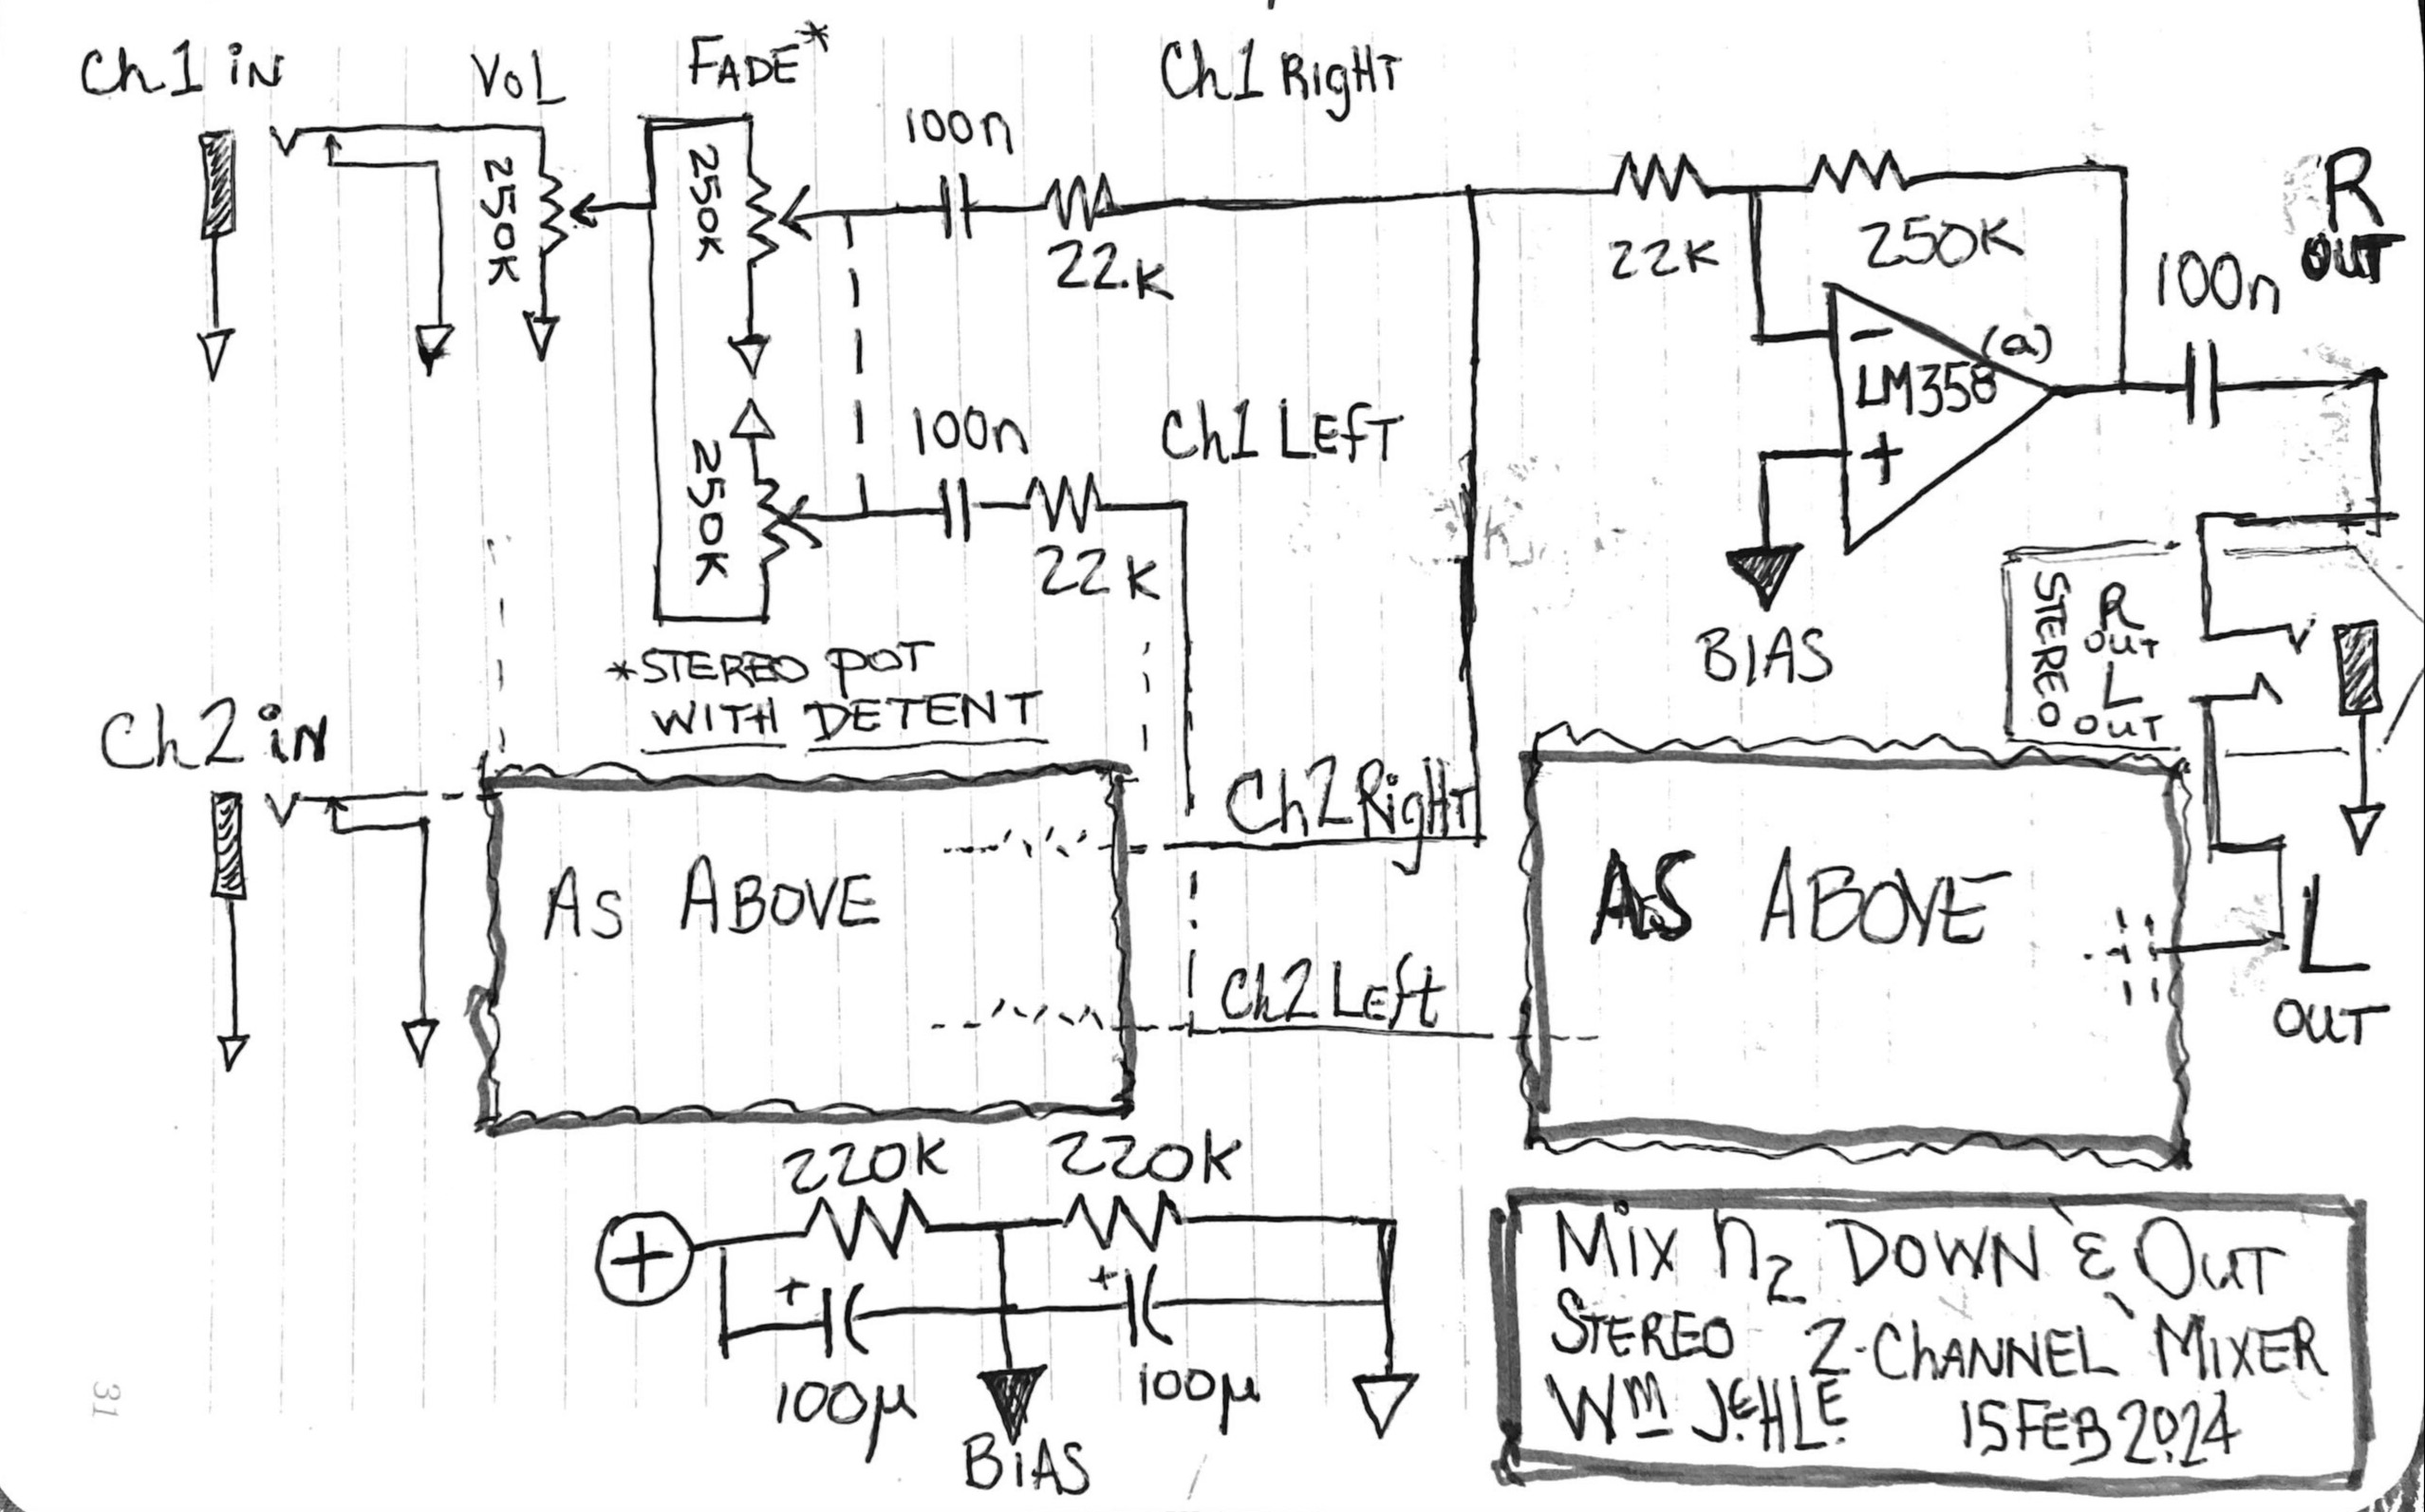 Ch1 iN
VOL
FADE*
Ch1 RIGHT
100n
250K
250K
22K
22K
250K
R
OUT
100n
(a)
-
LM358
+
BIAS
Ch1 LEFT
100n
250K
22K
*STEREO POT
WITH DETENT
STEREO
R
OUT
L
OUT
Ch2 iN
Ch2 RigHT
AS ABOVE
AS ABOVE
Ch2 LEft
L
OUT
220K
220K
+
+
+
100µ
100µ
BiAS
Mix n2 DOWN & OUT
STEREO 2-ChANNEL MIXER
WM JEHLE 15 FEB 2024
31